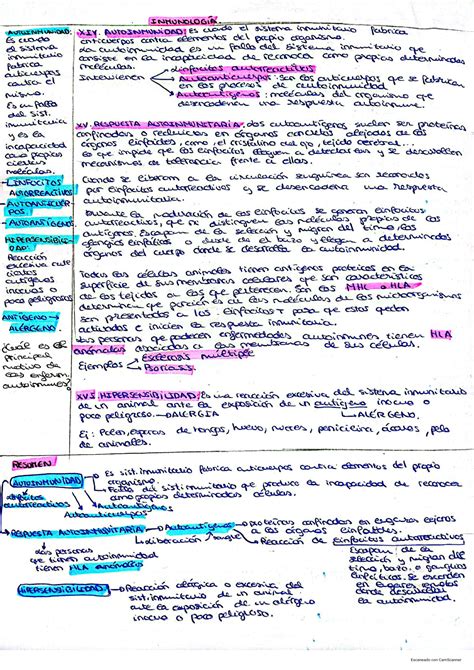 INMUNOLOGÍA.
AUTOINMUNIDAD:
Es cuado
el sistema
inmunitario
fabrica
anticuerpos
contra el
mismo.
Es un fallo
del sist.
inmunitario
y es la
incapacidad
como propias
ciertas
moléculas.
→ LINFOCITOS
AUTORREACTIVOS
→ AUTOANTICUER-
POS.
→ AUTOANTÍGENOS
HIPERSENSIBILI-
DAD:
Reacción
excesiva
antígenos
inocuos o
poco peligrosos
ANTÍGENO →
ALÉRGENO
¿Cuál es el
principal
motivo de
las enferm.
autoinmunes?
XIV. AUTOINMUNIDAD: Es cuado el sistema inmunitario fabrica
anticuerpos contra elementos del propio organismo.
La autoinmunidad es un fallo del sistema inmunitario que
consiste en la incapacidad de reconocer como propias determinadas
moléculas.
Intervienen
linfocitos autorreactivos
Autoanticuerpos: Son los anticuerpos que se fabrican
en los procesos de autoinmunidad
Autoantígenos: moléculas del organismo que
desencadenan una respuesta autoinmune.
XV. RESPUESTA AUTOINMUNITARIA: los autoantígenos suelen ser proteínas
confinadas o recluidas en órganos concretos alejados de los
órganos linfoides, como: el cristalino del ojo, tejido cerebral...
lo que impide que los linfocitos lleguen a detectarlas y se desarrollen
mecanismos de tolerancia frente a ellas.
Cuando se liberan a la circulación sanguínea son reconocidos
por linfocitos autorreactivos y se desencadena una respuesta
autoinmunitaria.
Durante la maduración de los linfocitos se generan linfocitos
autorreactivos, que no distinguen las moléculas propias de los
antígenos. Escapan de la selección y migran del timo, los
ganglios linfáticos o desde el bazo y llegan a determinados
órganos del cuerpo donde se desarrolla la autoinmunidad.
Todas las células animales tienen antígenos proteicos en la
superficie de sus membranas celulares que son característicos
de los tejidos a los que pertenecen. Son las MHC o HLA
que permiten que las moléculas de los microorganismos
son presentados a los linfocitos T para que estos queden
activados e inicien la respuesta inmunitaria.
Las personas que padecen enfermedades autoinmunes tienen HLA
anómalos asociados a las membranas de sus células.
Ejemplos
Esclerosis múltiple
Psoriasis.
XVI. HIPERSENSIBILIDAD: Es una reacción excesiva del sistema inmunitario
de un animal ante la exposición de un antígeno inocuo o
poco peligroso. → ALERGIA
→ ALÉRGENO.
Ej: Polen, esporas de hongos, huevo, nueces, penicilina, ácaros, pelo
de animales.
RESUMEN
AUTOINMUNIDAD
Es sist. inmunitario fabrica anticuerpos contra elementos del propio
organismo.
Fallo del sist. inmunitario que produce la incapacidad de reconocer
como propias determinadas células.
linfocitos
autorreactivos
Autoantígenos
Autoanticuerpos
RESPUESTA AUTOINMUNITARIA → Autoantígenos → proteínas confinadas en lugares lejanos
a los órganos linfoides.
liberación sangre → Reacción de linfocitos autorreactivos
Las personas
que tienen
autoinmunidad
tienen HLA anómalo
Escapan de la
selección y migran del
timo, bazo o ganglios
linfáticos. Se esconden
en lugares remotos
donde desarrollan
la autoinmunidad
HIPERSENSIBILIDAD → Reacción alérgica o excesiva del
sist. inmunitario de un animal
ante la exposición de un alérgeno
inocuo o poco peligroso.
Escaneado con CamScanner